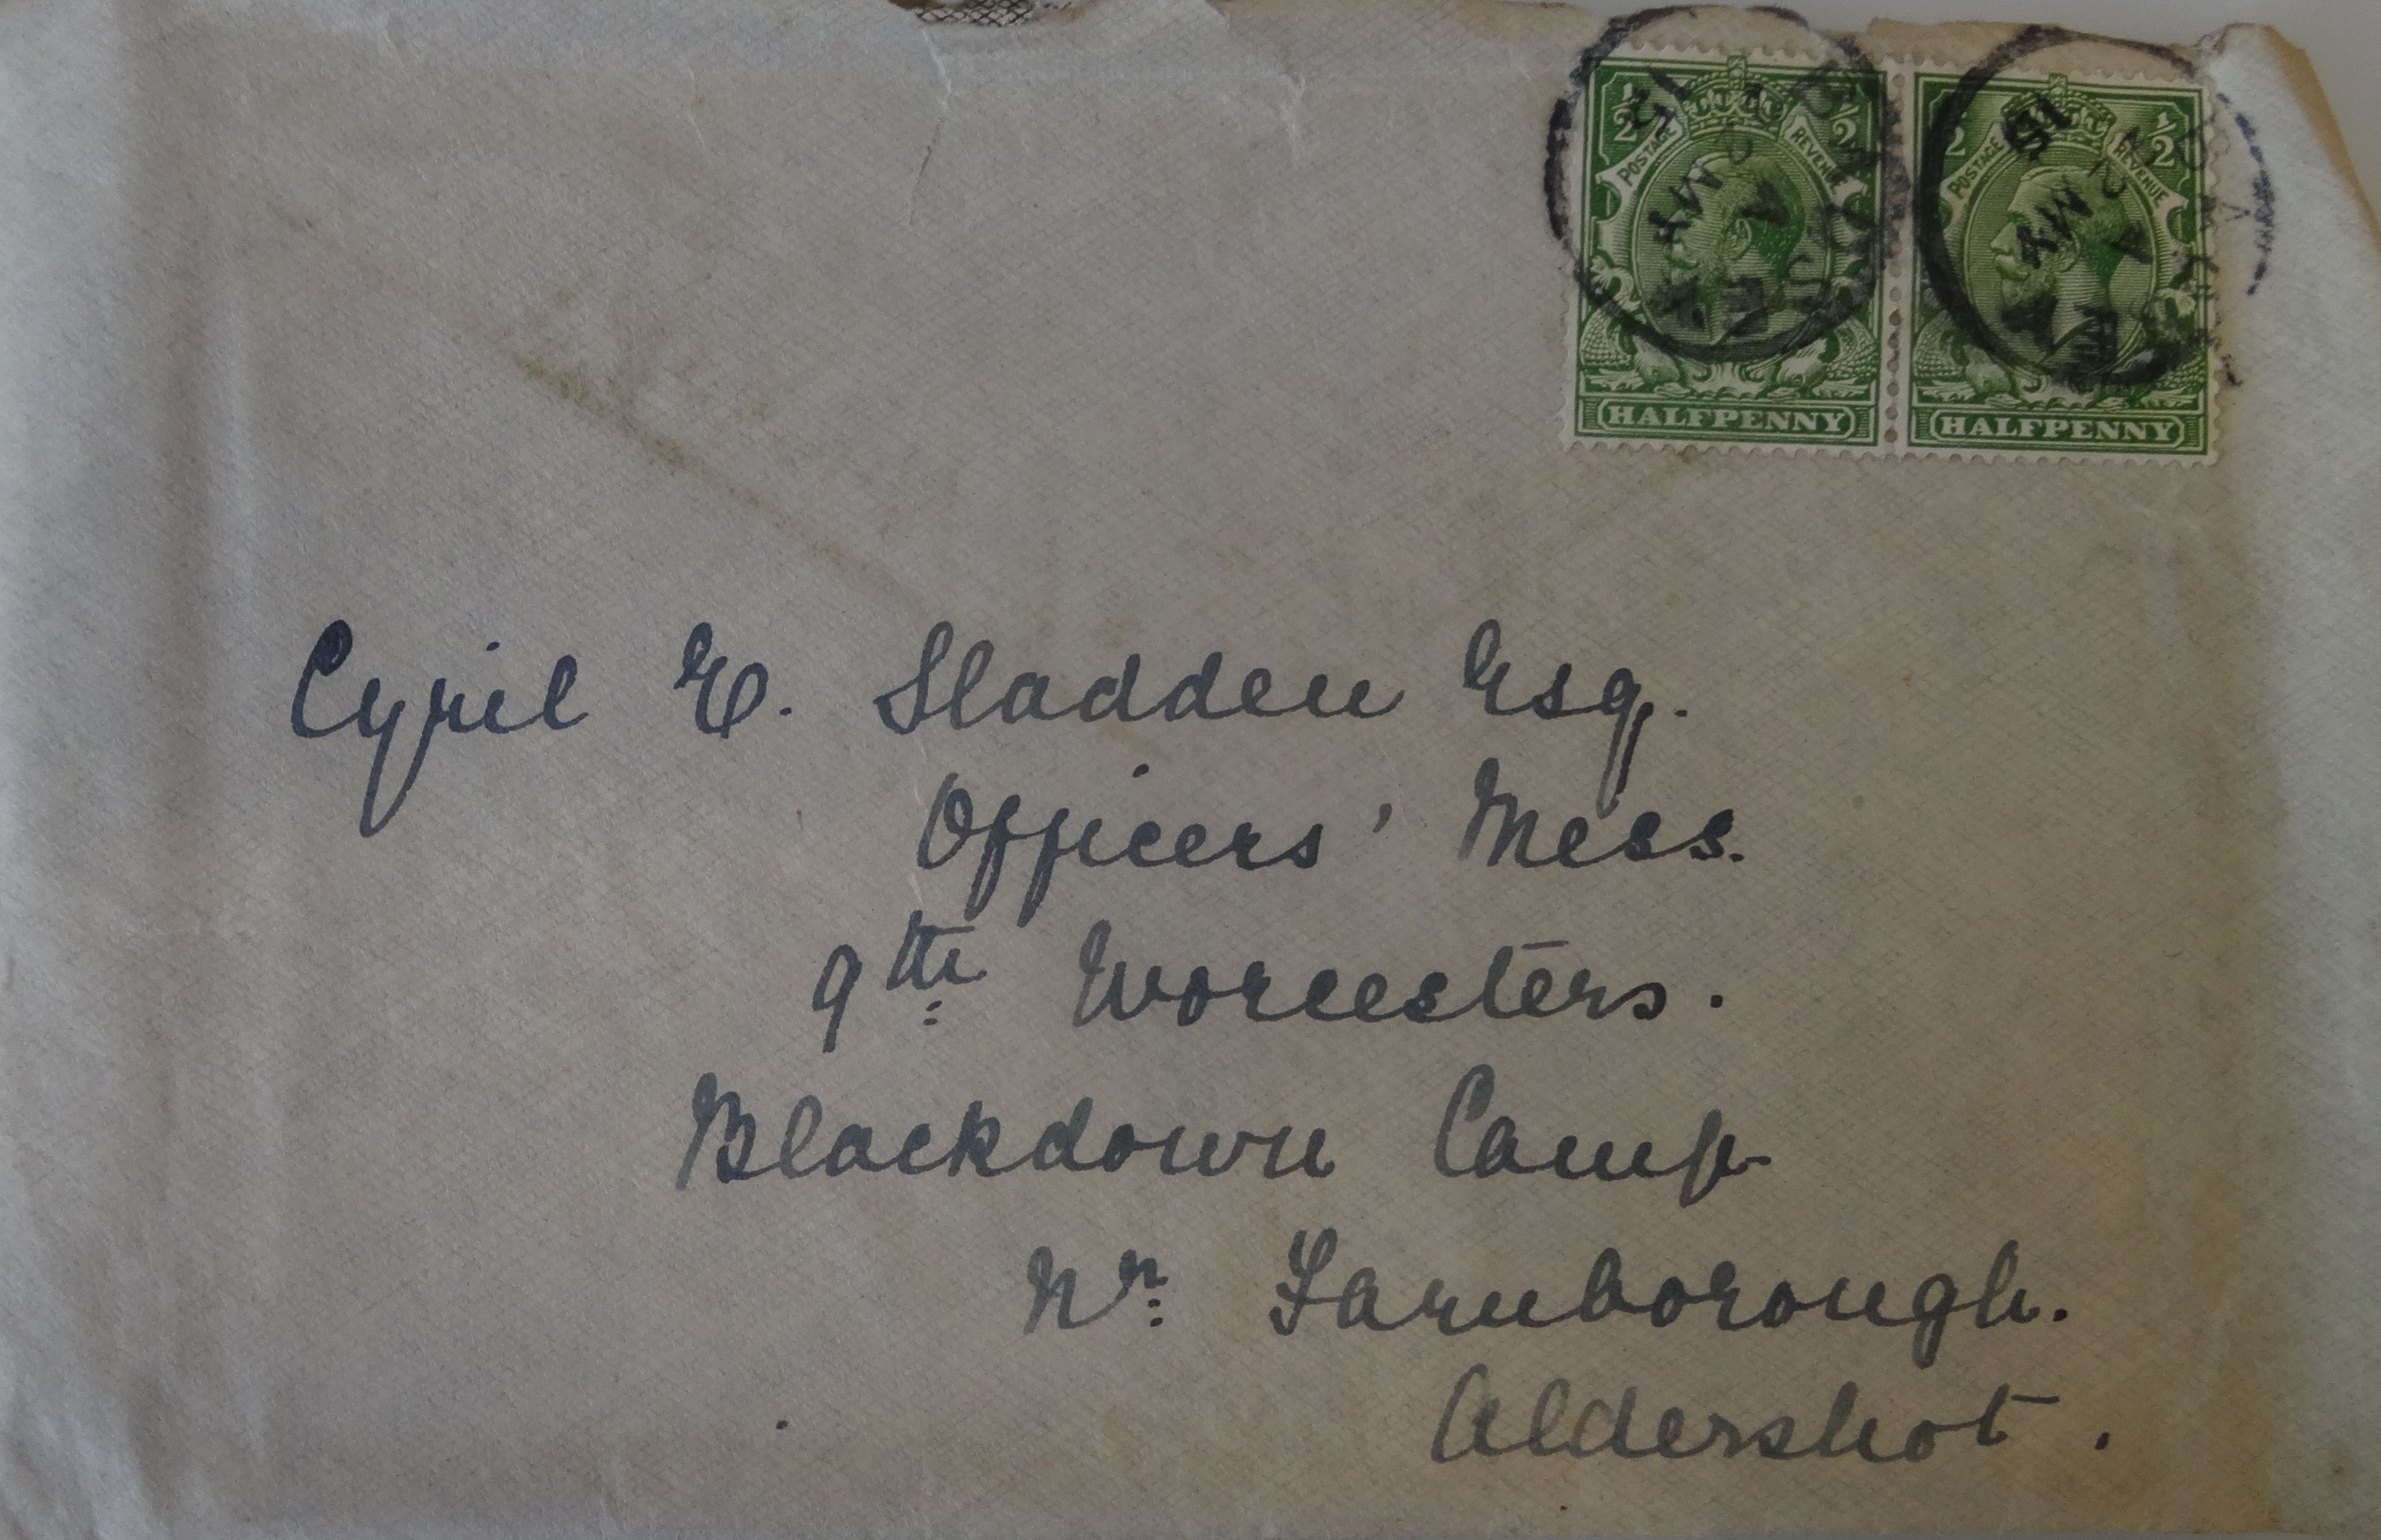 ½ POSTAGE REVENUE ½
½ POSTAGE REVENUE ½
MY
15
MY
15
HALFPENNY HALFPENNY
Cyril E. Sladden Esq.
Officers' Mess.
9th Worcesters.
Blackdown Camp
Nr Farnborough.
Aldershot.